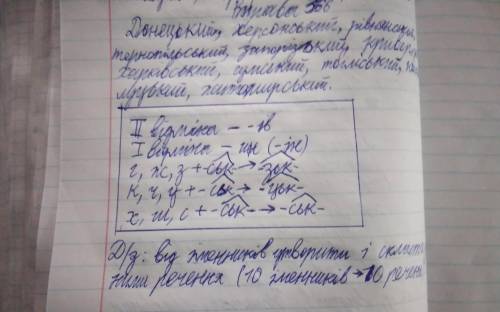 Вправа 356
Донецький, херсонський, рівненський,
тернопільський, запорізький,
харківський, сумський,
житомирський.
II відміна – -ів
I відміна – -ин (-їн)
г, ж, з + -ськ- → -зьк-
к, ч, ц + -ськ- → -цьк-
х, ш, с + -ськ- → -ськ-
Д/з: від іменників утворити і скласти
ними речення (10 іменників → 10 речень